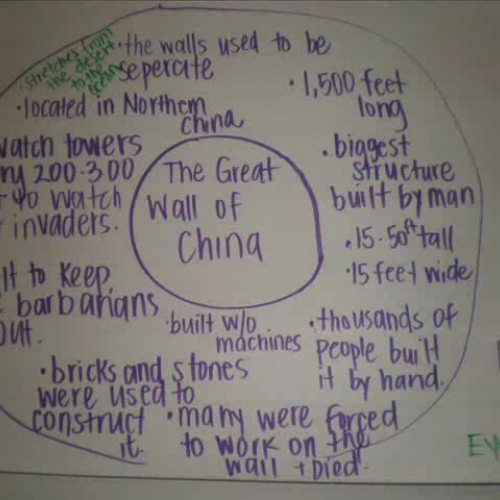 stretches from
the desert
to the
ocean
·the walls used to be
seperate
·located in Northern
China
·1,500 feet
long
watch towers
200-300
to watch
invaders.
·biggest
structure
built by man
·15-50ft tall
·15 feet wide
The Great
Wall of
China
to keep
barbarians
out.
·built w/o
machines
·thousands of
people built
it by hand.
·bricks and stones
were used to
construct
it.
·many were forced
to work on the
wall + died.